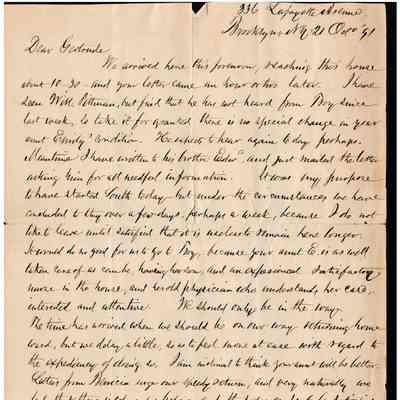 336 Lafayette Avenue,
Brooklyn, N.Y. 21 Oct '91
Dear Gertrude
We arrived here this forenoon, reaching this house
about 10.30 and your letter came an hour or two later. I have
seen Will Pittman, but find that he has not heard from Troy since
last week, so take it for granted there is no special change in your
aunt Emily's condition. He expects to hear again to day perhaps.
Meantime I have written to his brother and just mailed the letter
asking him for all needful information. It was my purpose
to have started South today, but under the circumstances we have
concluded to stay over a few days, perhaps a week, because I do not
like to leave until satisfied that it is useless to remain here longer.
It would do no good for us to go to Troy, because your aunt E. is as well
taken care of as can be, having her own, and an experienced & satisfactory
nurse in the house, and her old physician who understands her case,
interested and attentive. We should only be in the way.
The time has arrived when we should be on our way returning home
ward, but we delay a little, so as to feel more at ease with regard to
the expediency of doing so. I am inclined to think your aunt will be better.
Letters from Benicia urge our speedy return, and very naturally we